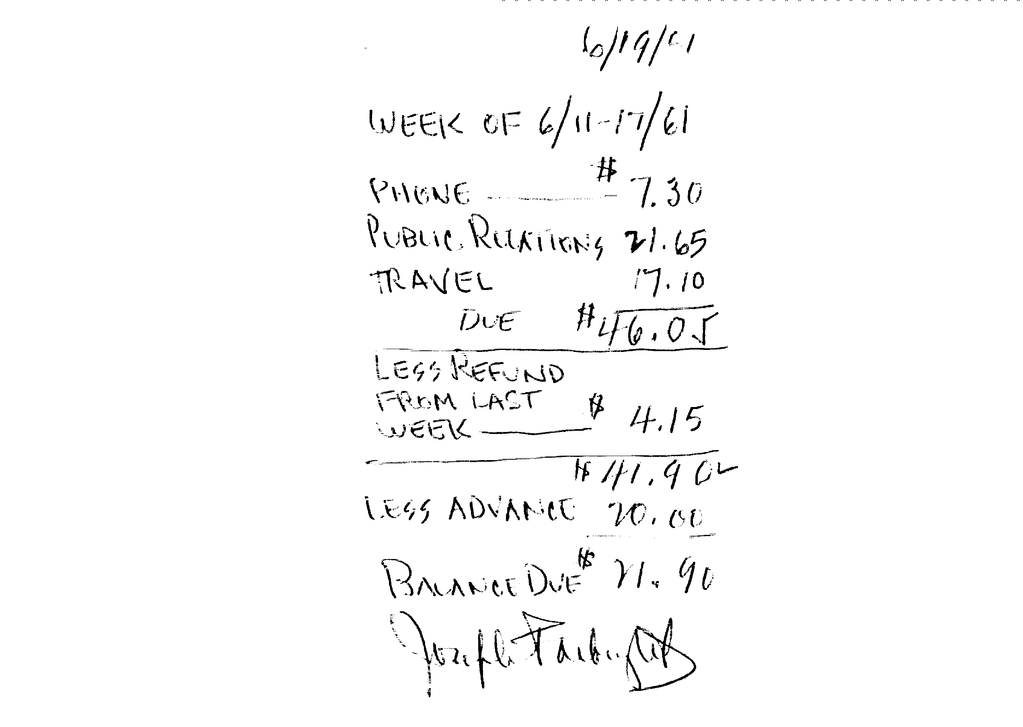 6/19/61
WEEK OF 6/11-17/61
PHONE $ 7.30
PUBLIC RELATIONS 21.65
TRAVEL 17.10
DUE $46.05
LESS REFUND
FROM LAST
WEEK $ 4.15
$ 41.90
LESS ADVANCE 20.00
BALANCE DUE $ 21.90
Joseph